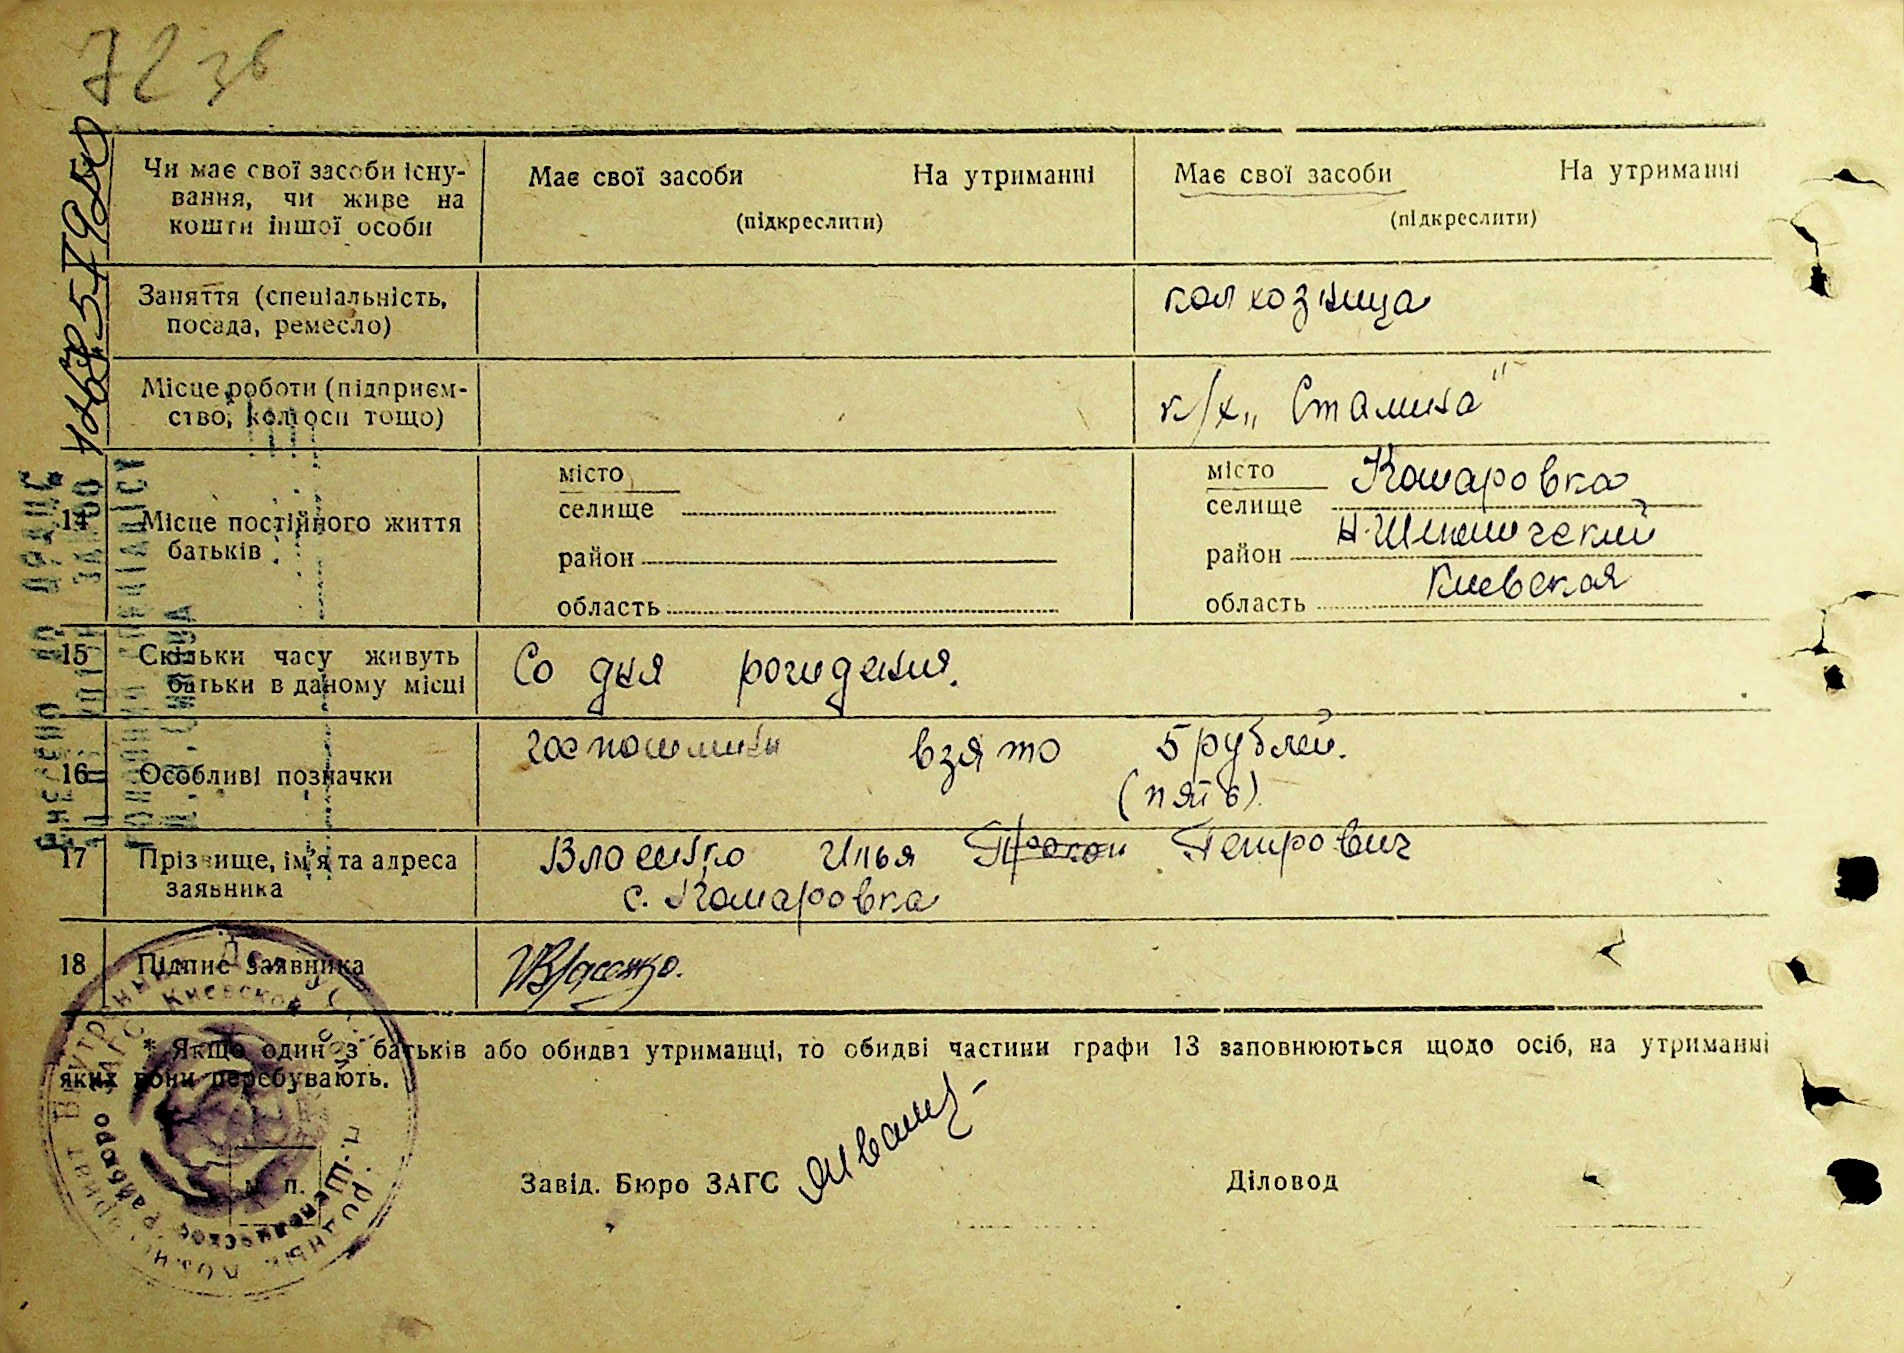 72 зв
Чи має свої засоби існу-
вання, чи живе на
кошти іншої особи
Має свої засоби На утриманні
(підкреслити)
Має свої засоби На утриманні
(підкреслити)
Заняття (спеціальність,
посада, ремесло)
колхозница
Місце роботи (підприєм-
ство, колгосп тощо)
к/х „Сталина"
14 Місце постійного життя
батьків
місто
селище
район
область
місто Комаровка
селище
район Н-Шепеличский
область Киевская
15 Скільки часу живуть
батьки в даному місці
Со дня рождения.
16 Особливі позначки
госпошлины взято 5 рублей.
(пять).
17 Прізвище, ім'я та адреса
заявника
Власенко Илья Прокоп Петрович
с. Комаровка
18 Підпис заявника
ИВласенко.
* Якщо один з батьків або обидва утриманці, то обидві частини графи 13 заповнюються щодо осіб, на утриманні
яких вони перебувають.
м. п.
Завід. Бюро ЗАГС
Діловод